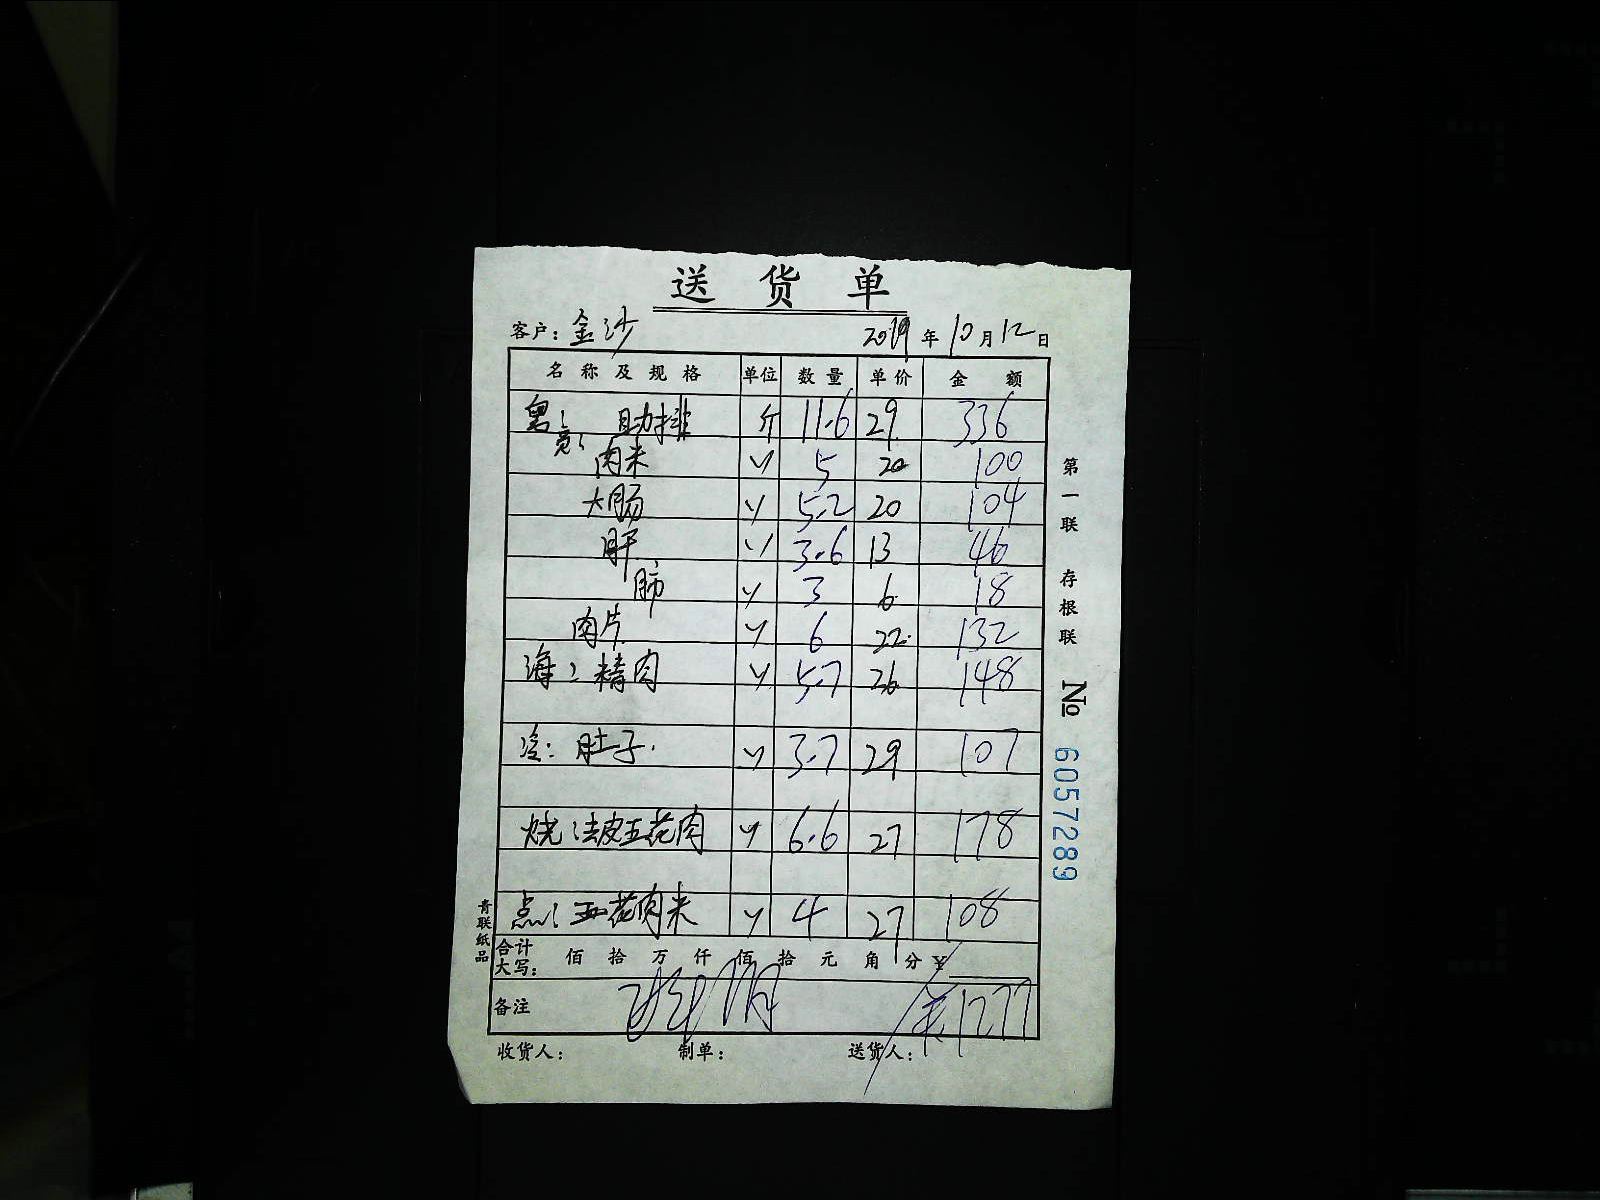 送 货 单
客户：金沙 2019年10月12日
名称及规格 单位 数量 单价 金额
粤： 助排 斤 11.6 29 336
肉米 〃 5 20 100
大肠 〃 5.2 20 104
肝 〃 3.6 13 46
肺 〃 3 6 18
肉片 〃 6 22 132
海：精肉 〃 5.7 26 148
冷：肚子 〃 3.7 29 107
烧：去皮五花肉 〃 6.6 27 178
点：五花肉米 〃 4 27 108
合计大写： 佰 拾 万 仟 佰 拾 元 角 分 ¥
备注 1277
收货人： 制单： 送货人：
第一联 存根联 № 6057289
青联纸品